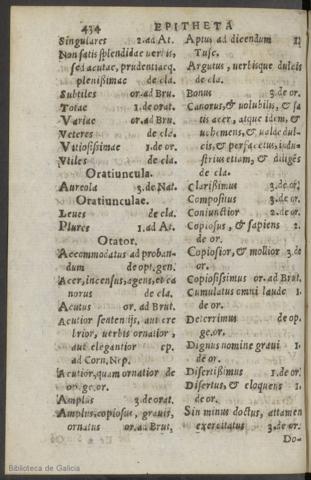 434 EPITHETA
Singulares 2. ad At.
Non satis splendidae uerbis,
sed acutae, prudentiaeq.
plenißimae de cla.
Subtiles or. ad Bru.
Totae 1. de orat.
Variae or. ad Bru.
Veteres de cla.
Vitiosißimae 1. de or.
Vtiles de cla.
Oratiuncula.
Aureola 3. de Nat.
Oratiunculae.
Leues de cla.
Plures 1. ad At.
Orator.
Accommodatus ad proban-
dum de opt. gen.
Acer, incensus, agens, et ca
norus de cla.
Acutus or. ad Brut.
Acutior sententijs, aut cre
brior, uerbis ornatior,
aut elegantior ep.
ad Corn. Nep.
Acutior, quam ornatior de
op. ge. or.
Amplus 3. de orat.
Amplus, copiosus, grauis,
ornatus or. ad Brut,
Aptus ad dicendum 1.
Tusc.
Argutus, uerbisque dulcis
de cla.
Bonus 3. de or.
Canorus, & uolubilis, & sa
tis acer, atque idem, &
uehemens, & ualde dul-
cis, & perfacetus, indu-
strius etiam, & diligẽs
de cla.
Clarißimus 3. de or.
Compositus 3. de or.
Coniunctior 2. de or.
Copiosus, & sapiens 2.
de or.
Copiosior, & mollior 3. de
or.
Copiosißimus or. ad Brut.
Cumulatus omni laude 1.
de or.
Deterrimus de op.
ge. or.
Dignus nomine graui 1.
de or.
Disertißimus 1. de or.
Disertus, & eloquens 1.
de or.
Sin minus doctus, attamen
exercitatus 3. de or.
Do-
Biblioteca de Galicia